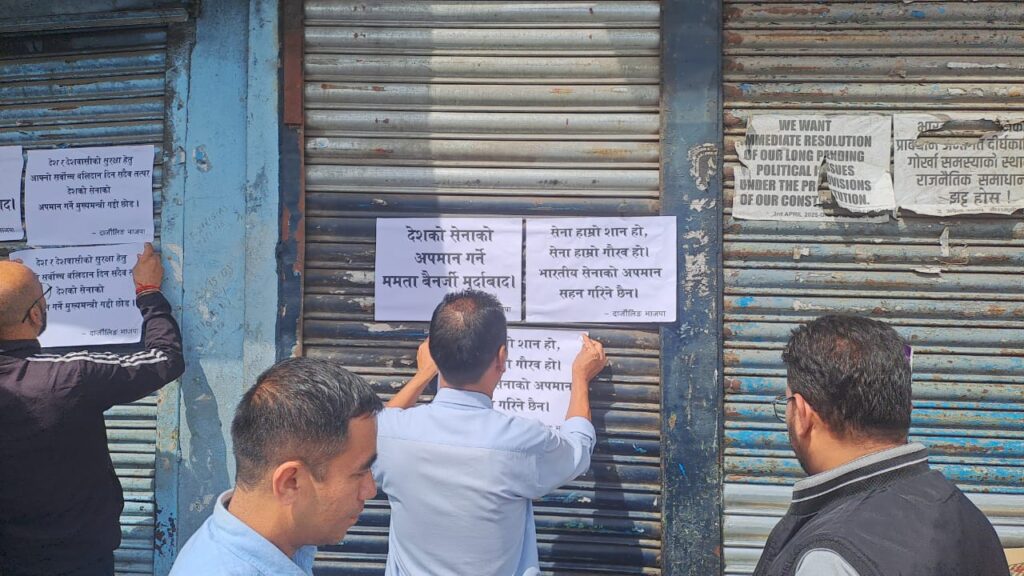 देश र देशवासीको सुरक्षा हेतु
आफ्नो सर्वोच्च बलिदान दिन सदैव तत्पर
देशको सेनाको
अपमान गर्ने मुख्यमन्त्री गद्दी छोड।
- दार्जीलिङ भाजपा
देश र देशवासीको सुरक्षा हेतु
सर्वोच्च बलिदान दिन सदैव तत्पर
देशको सेनाको
गर्ने मुख्यमन्त्री गद्दी छोड।
- दार्जीलिङ भाजपा
देशको सेनाको
अपमान गर्ने
ममता बैनर्जी मुर्दाबाद।
- दार्जीलिङ भाजपा
सेना हाम्रो शान हो,
सेना हाम्रो गौरव हो।
भारतीय सेनाको अपमान
सहन गरिने छैन।
- दार्जीलिङ भाजपा
शान हो,
गौरव हो।
सेनाको अपमान
गरिने छैन।
WE WANT
IMMEDIATE RESOLUTION
OF OUR LONG PENDING
POLITICAL ISSUES
UNDER THE PROVISIONS
OF OUR CONSTITUTION.
3rd APRIL, 2025
गोर्खा समस्याको
राजनैतिक समाधान
झट्ट होस !